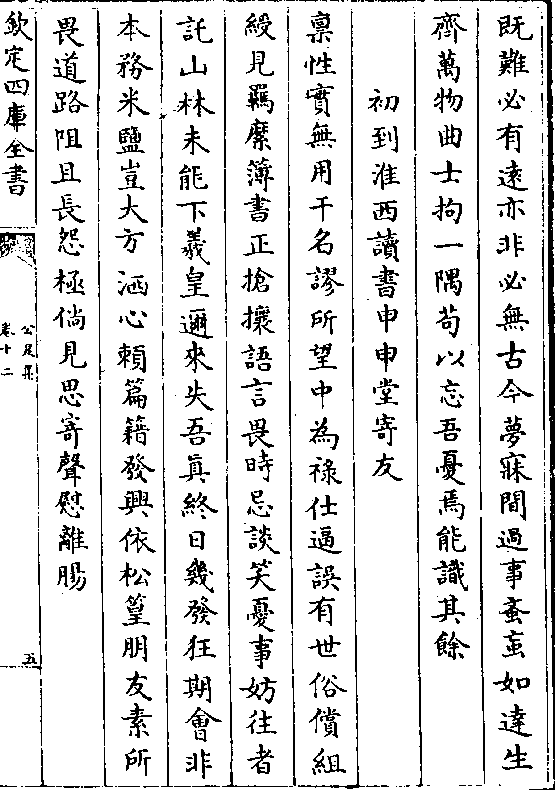 既難必有遠亦非必無古今夢寐間過事蚉䖟如達生
齊萬物曲士拘一隅苟以忘吾憂焉能識其餘
初到淮西讀書申申堂寄友
禀性實無用干名謬所望中為祿仕逼誤有世俗償組
綬見羈縻簿書正搶攘語言畏時忌談笑憂事妨往者
託山林未能下羲皇邇來失吾真終日幾發狂期會非
本務米鹽豈大方洒心賴篇籍發興依松篁朋友素所
畏道路阻且長怨極倘見思寄聲慰離腸
欽定四庫全書
公是集
卷十二
五